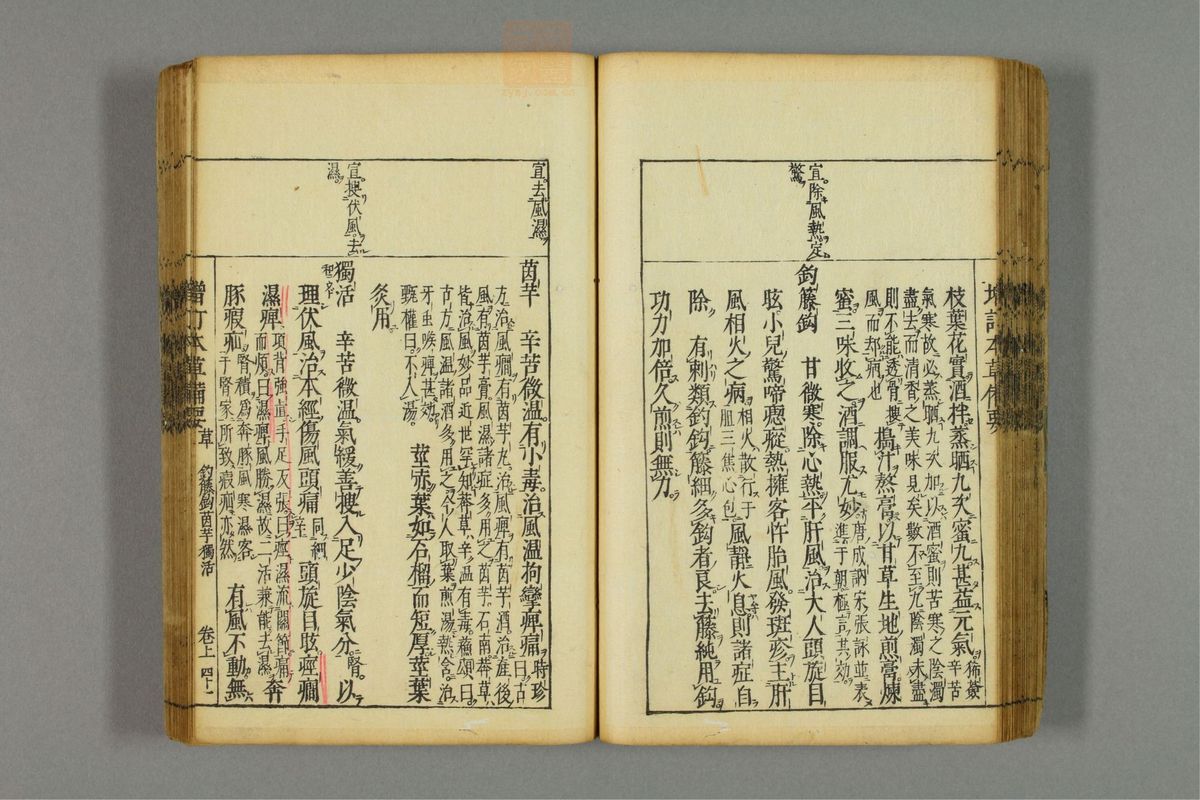 宜除風熱定
驚
枝葉花實酒拌蒸晒九次蜜丸甚益元氣豨薟辛苦
氣寒故必蒸晒九次加以酒蜜則苦寒之陰濁
盡去而清香之美味見矣數不至九陰濁未盡
則不能透骨搜
風而却病也
搗汁熬膏以甘草生地煎膏煉
蜜三味收之酒調服尤妙唐成訥宋張詠並表
進于朝極言其効
鈎籐鈎 甘微寒除心熱平肝風治大人頭旋目
眩小兒驚啼瘛瘲熱擁客忤胎風發斑疹主肝
風相火之病相火散行于
胆三焦心包
風靜火息則諸症自
除 有刺類鈎鈎籐細多鈎者良去藤純用鈎
功力加倍久煎則無力
宜去風濕
宜搜伏風去
濕
茵芋 辛苦微溫有小毒治風溫拘攣痹痛時珍曰古
方治風癇有茵芋丸治風痹有茵芋酒治產後
風有茵芋膏風濕諸症多用之茵芋石南莽草
皆治風妙品近世罕知莽草辛温有毒蘓頌曰
古方風温諸酒多用之今人取葉煎湯熱含治
牙虫喉痹甚効
甄權曰不入湯
莖赤葉如石榴而短厚莖葉
炙用
獨活 辛苦微温氣緩善搜入足少陰氣分腎以
理伏風治本經傷風頭痛同細辛
頭旋目眩痙癇
濕痹項背強直手足反張曰痙濕流關節痛
而煩曰濕痹風勝濕故二活兼能去濕
奔
豚疝瘕腎積爲奔豚風寒濕客
于腎家所致瘕疝亦然
有風不動無
增訂本草備要 草 鈎藤鈎茵芋獨活 卷上 四十